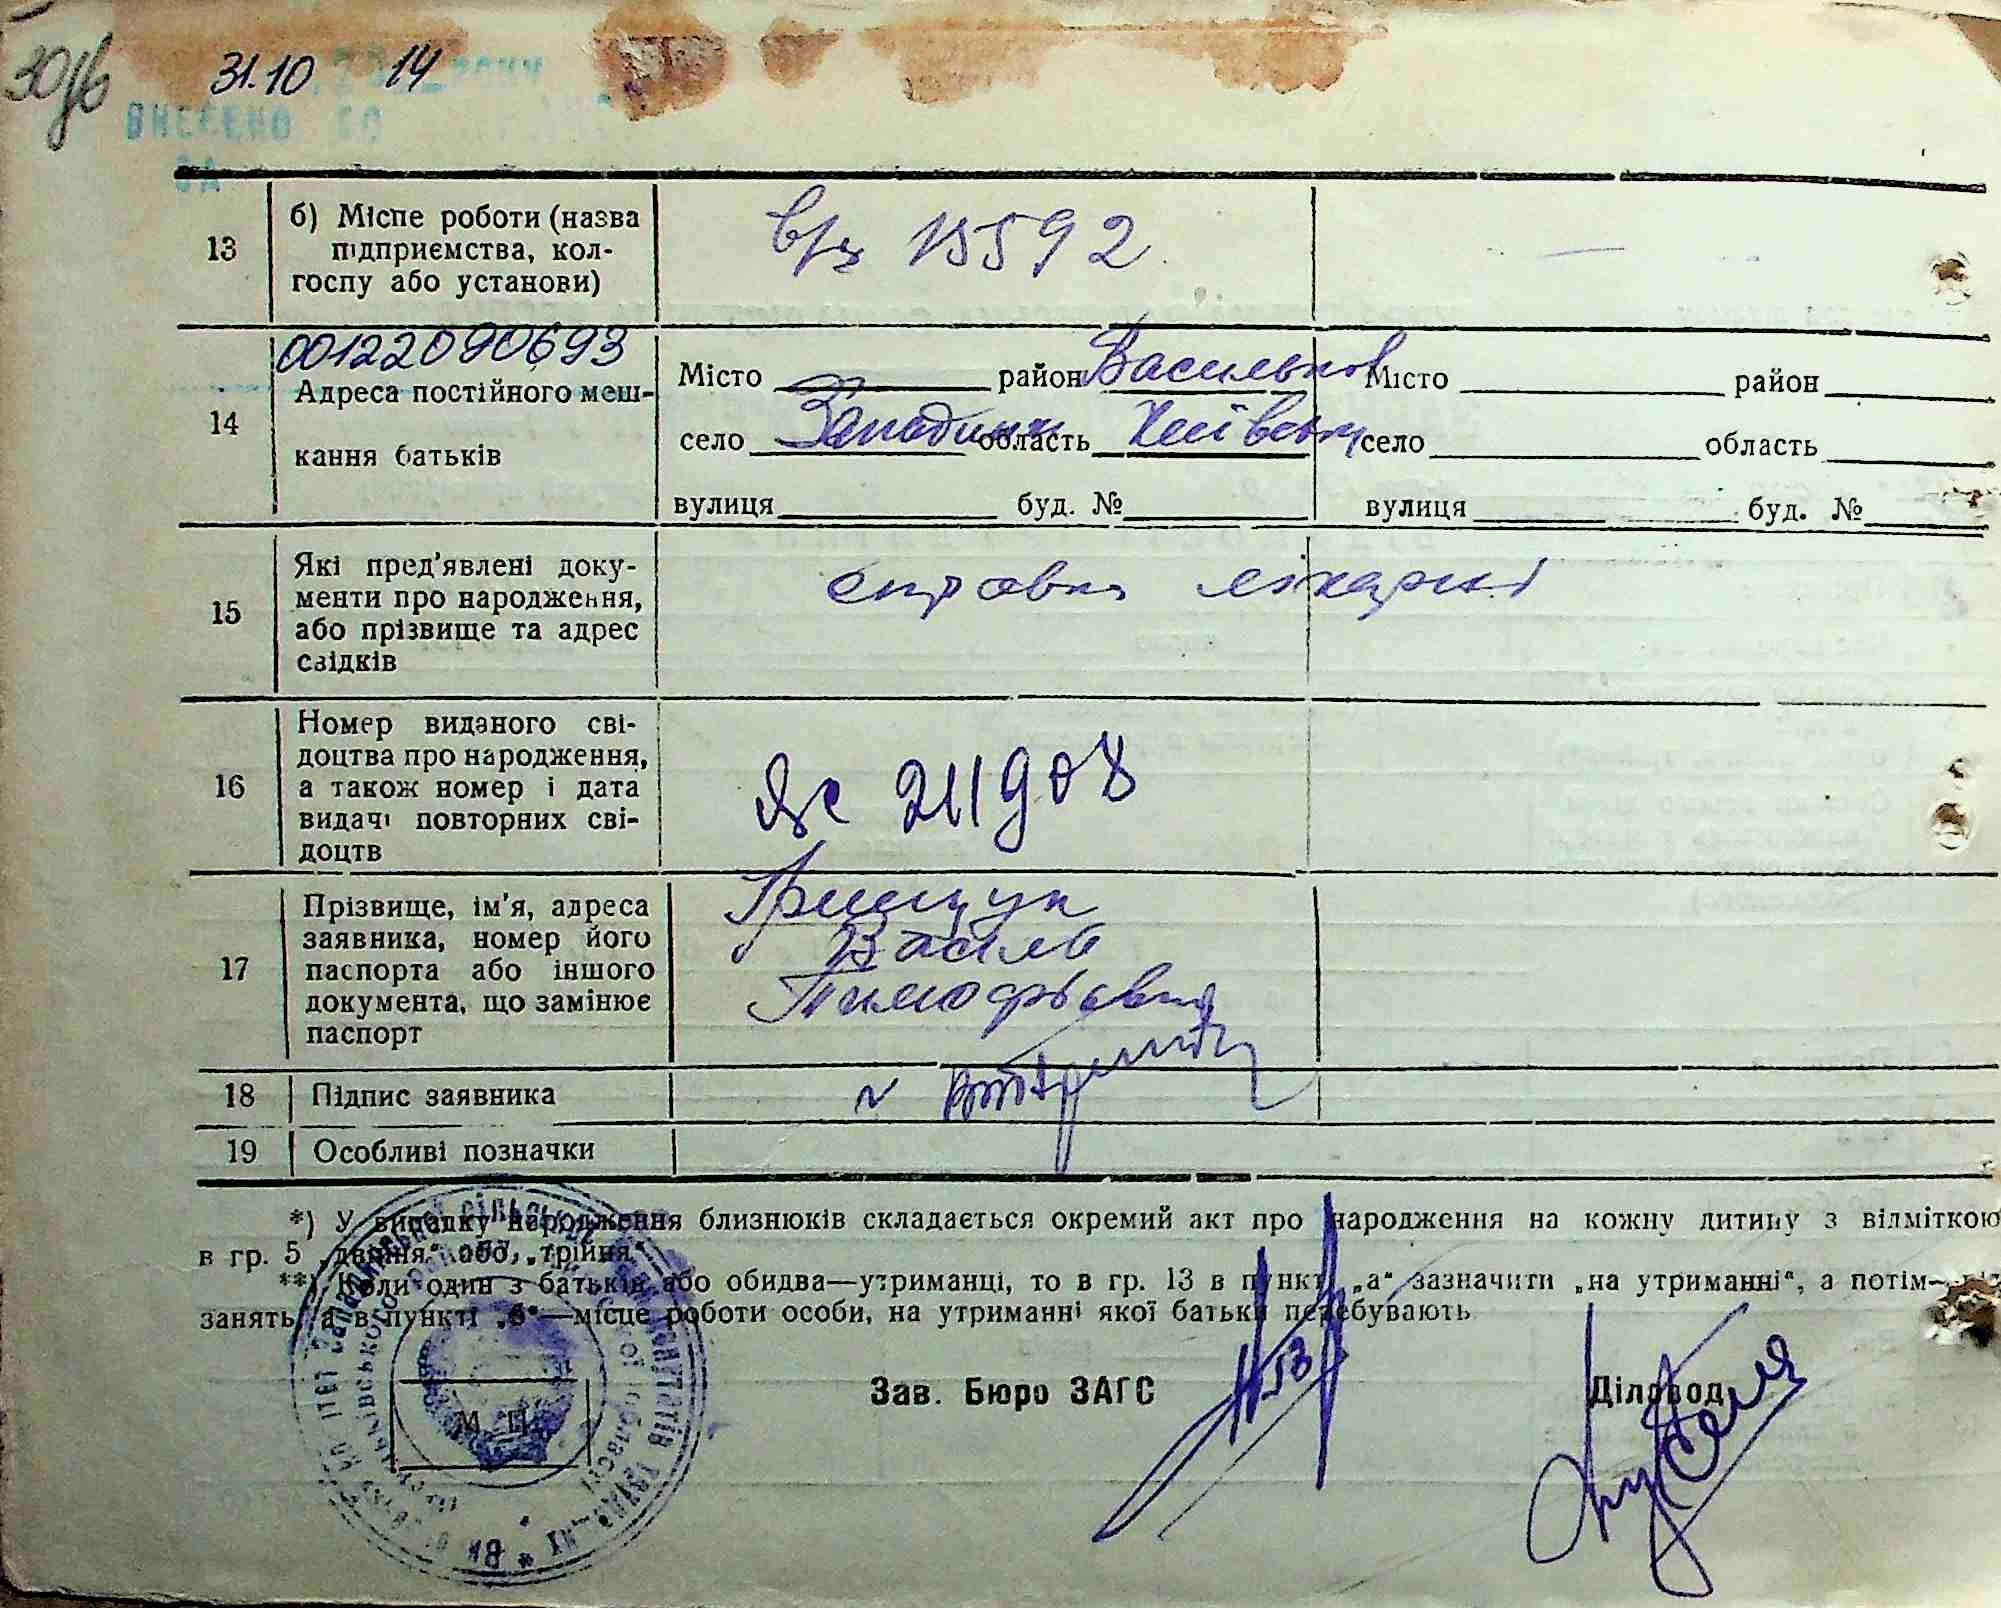 30 зв
31.10 14 року
ВНЕСЕНО ДО
13 б) Місце роботи (назва підприємства, колгоспу або установи) в/ч 15592 —
00122090693
14 Адреса постійного мешкання батьків
Місто район Васильков Місто район
село Западинка область Київськ село область
вулиця буд. № вулиця буд. №
15 Які пред'явлені документи про народження, або прізвище та адрес свідків справка лікарні
16 Номер виданого свідоцтва про народження, а також номер і дата видачі повторних свідоцтв 211908
17 Прізвище, ім'я, адреса заявника, номер його паспорта або іншого документа, що замінює паспорт Грищук
Василь
Тимофієвич
18 Підпис заявника
19 Особливі позначки
*) У випадку народження близнюків складається окремий акт про народження на кожну дитину з відміткою
в гр. 5 „двійня" або „трійня"
**) Коли один з батьків або обидва—утриманці, то в гр. 13 в пункті „а" зазначити „на утриманні", а потім—
занять, а в пункті „б"—місце роботи особи, на утриманні якої батьки перебувають
Зав. Бюро ЗАГС Діловод
М. П.